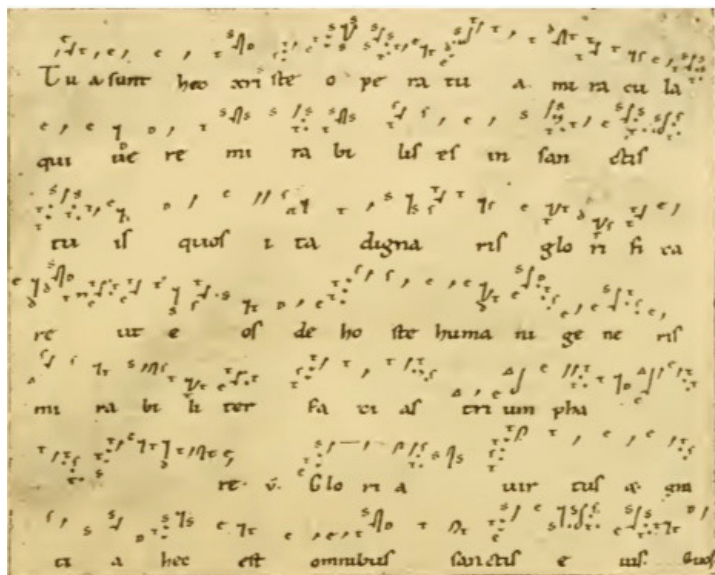 Tu a sunt hec xpi ste o pe ra tu a mi ra cu la
qui ue re mi ra bi lis es in san ctis
tu is quos i ta digna ris glo ri fi ca
re ut e os de ho ste huma ni ge ne ris
mi ra bi li ter fa ci as tri um pha
re. v. Glo ri a uir tus æ. gra
ti a hec est omnibus sanctis e ius. Quos